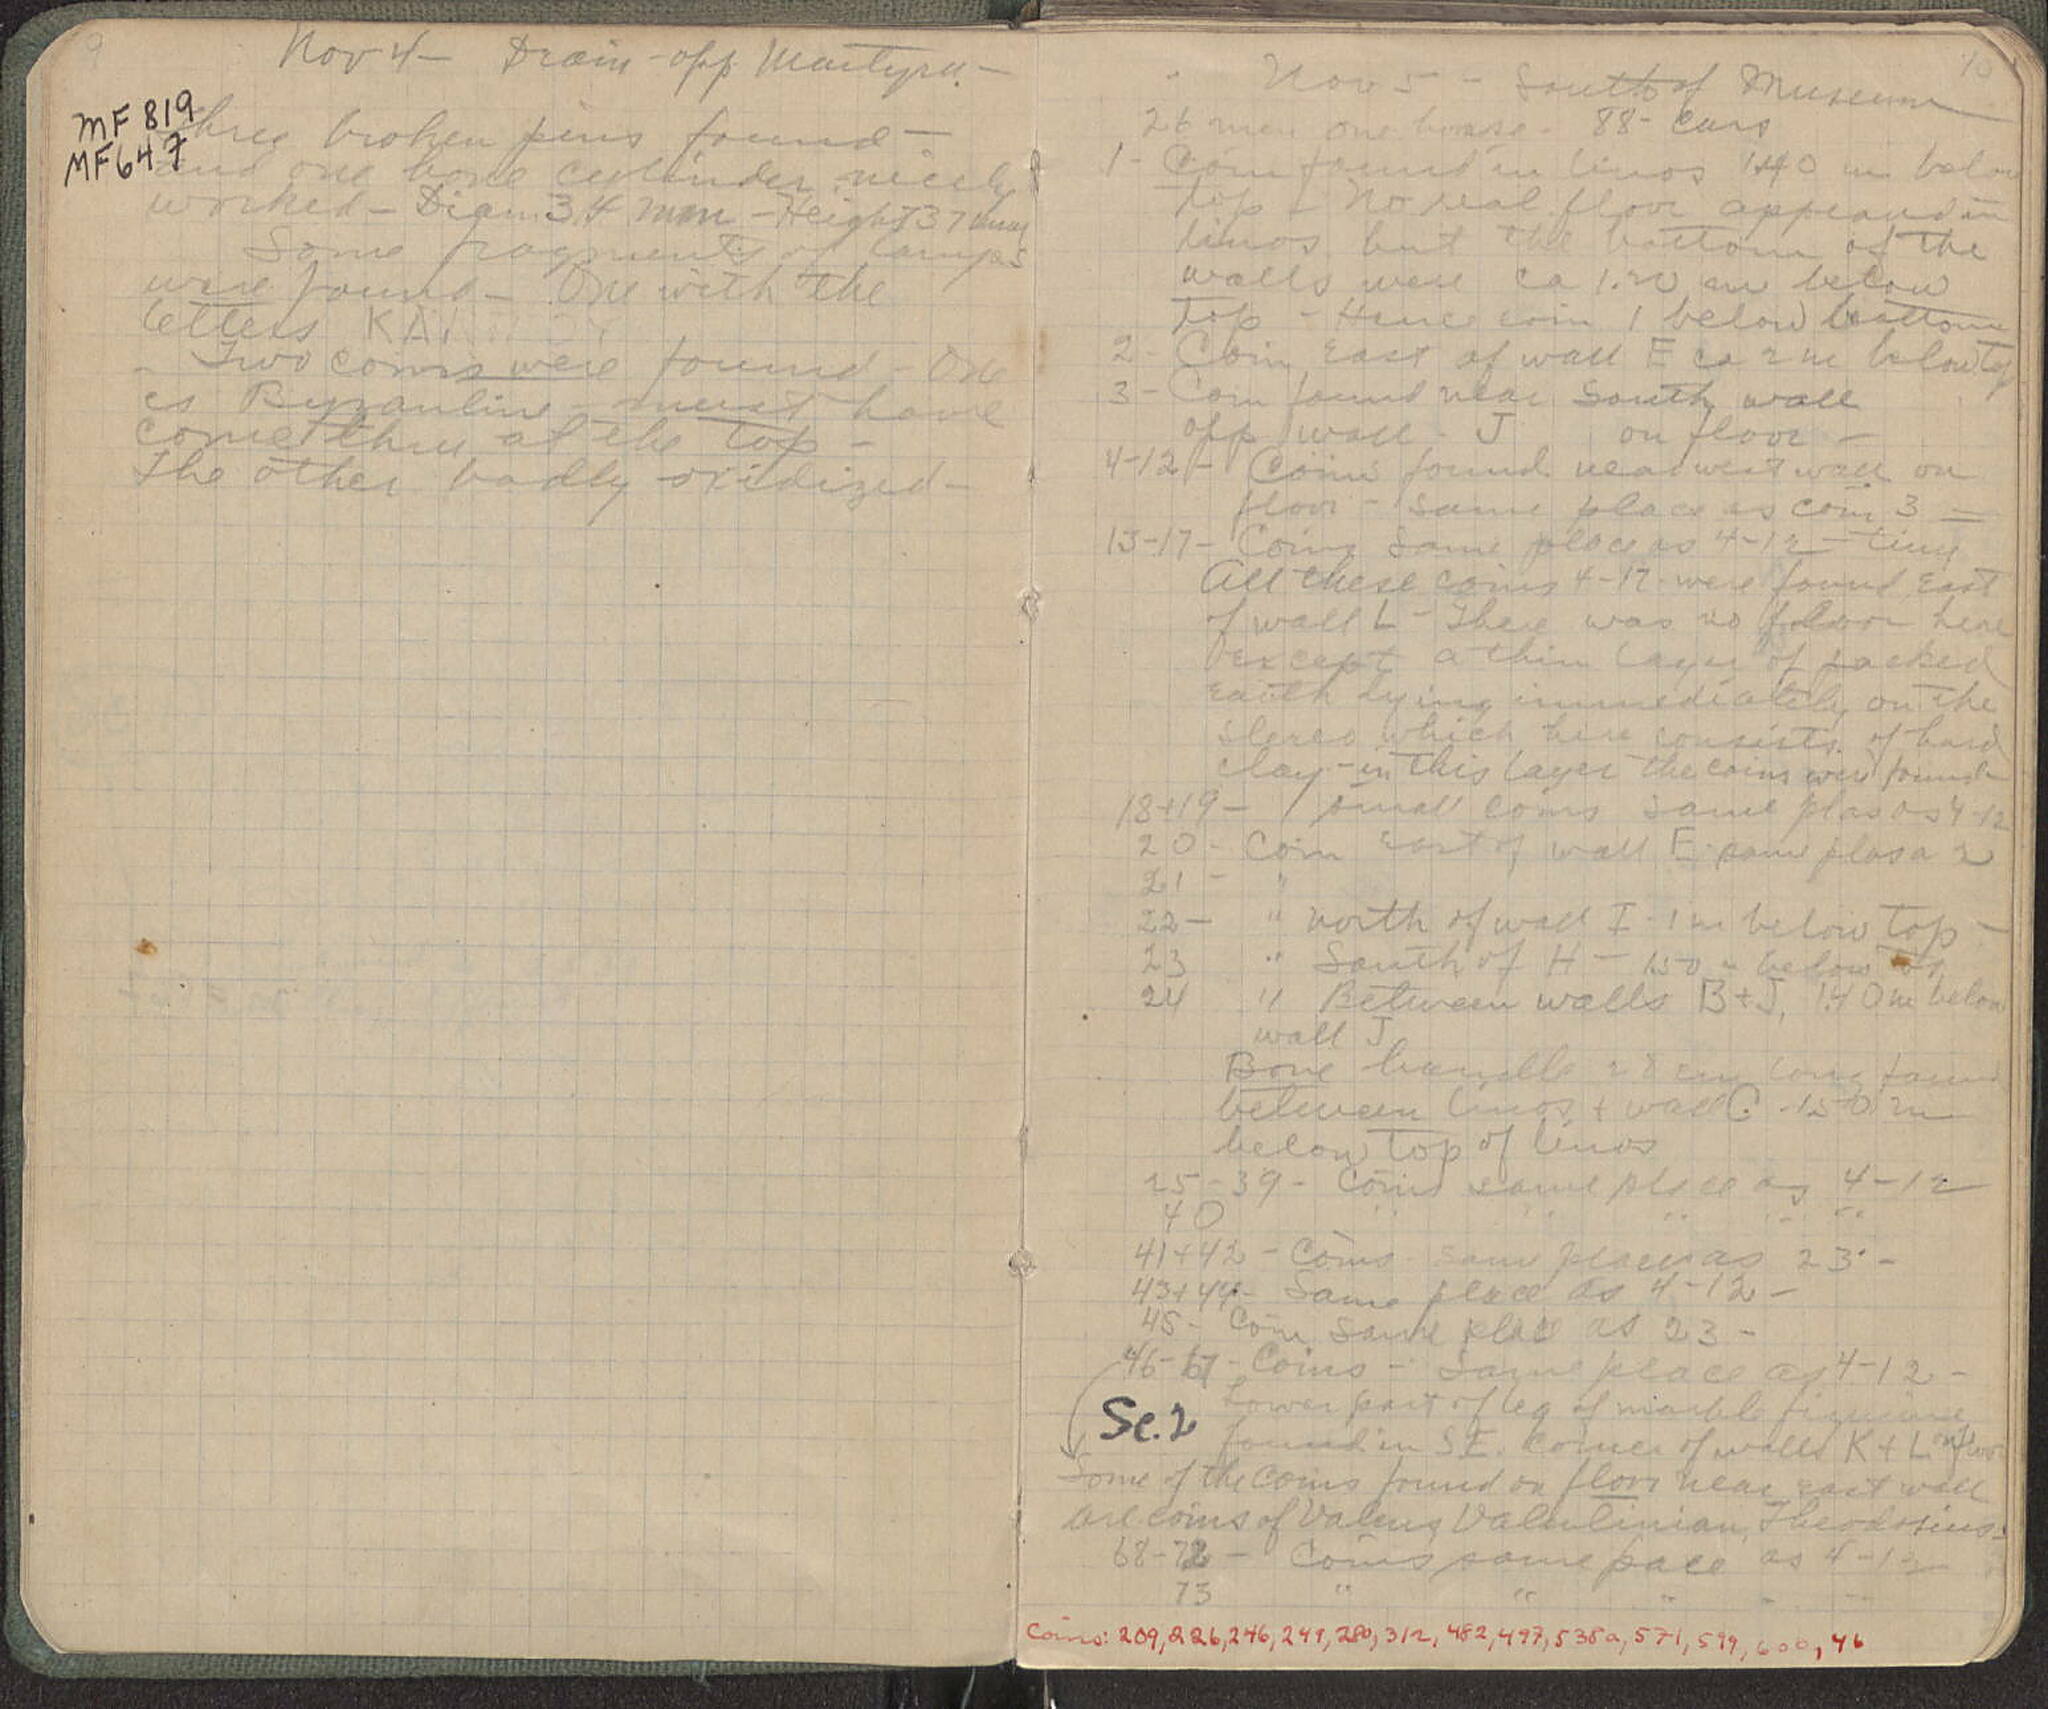 9
Nov 4 - Drain - opp. Martyru. -
MF 819
MF 647
Three broken pins found -
and one bone cylinder nicely
worked - Diam. 3.4 mm - Height 37 mm
Some fragments of lamps
were found - One with the
letters KAI
- Two coins were found - One
is Byzantine - must have
come thru at the top -
The other badly oxidized -
10
Nov 5 - South of Museum
26 men one horse - 88 - cars
1 - Coin found in linos 1.40 m below
top - No real floor appeared in
linos but the bottom of the
walls were ca 1.20 m below
top - Hence coin 1 below bottom
2 - Coin East of wall E ca 2 m below top
3 - Coin found near South wall
opp wall - J on floor -
4-12 - Coins found near west wall on
floor - same place as coin 3 =
13-17 - Coins same place as 4-12 - tiny
All these coins 4-17 were found East
of wall L - There was no floor here
except a thin layer of packed
earth lying immediately on the
stereo which here consists of hard
clay - in this layer the coins were found -
18+19 - small coins same plas as 4-12
20 - Coin East of wall E same plas a 2
21 - "
22 - " north of wall I - 1 m below top -
23 " South of H - 1.50 " below
24 " Between walls B + J, 1.40 m below
wall J
Bone handle 28 cm long found
between linos + wall C - 1.50 m
below top of linos
25-39 - Coins same place as 4-12
40 " " " " "
41+42 - Coins same place as 23 -
43+44 - Same place as 4-12 -
45 - Coin same place as 23 -
46-67 - Coins - same place as 4-12 -
Lower part of leg of marble figurine
Sc. 2
found in S.E. corner of walls K + L on floor
Some of the coins found on floor near east wall
are coins of Valens, Valentinian, Theodosius.
68-72 - Coins same pace as 4-12
73 " " " " "
Coins: 209, 226, 246, 249, 280, 312, 482, 497, 538a, 571, 599, 600, 46